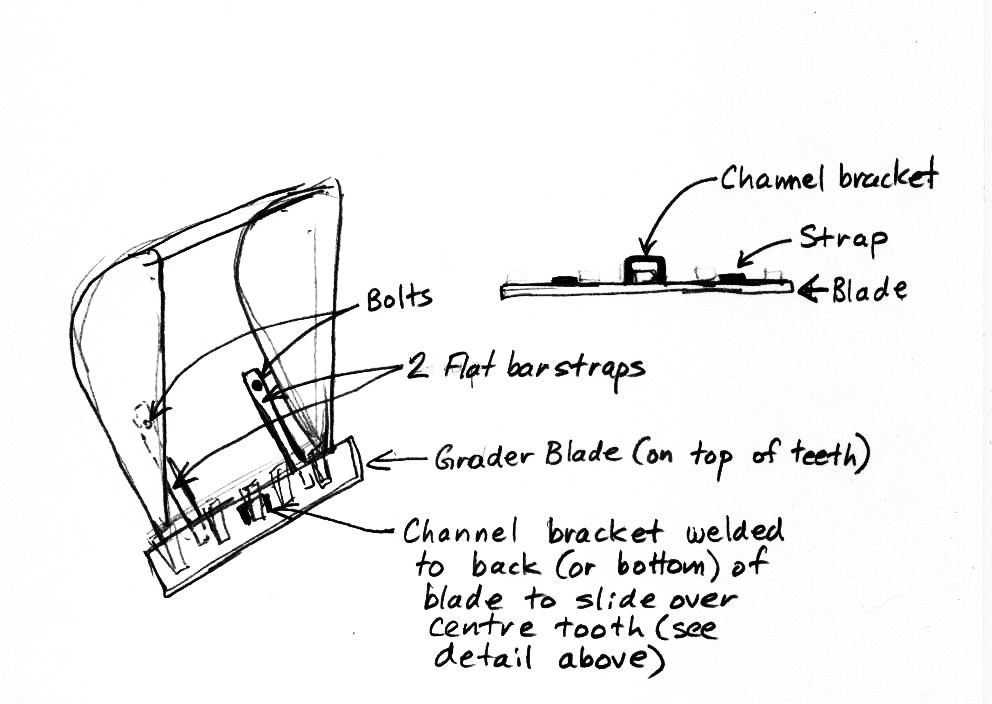 Channel bracket
Strap
Blade
Bolts
2 Flat bar straps
Grader Blade (on top of teeth)
Channel bracket welded
to back (or bottom) of
blade to slide over
centre tooth (see
detail above)